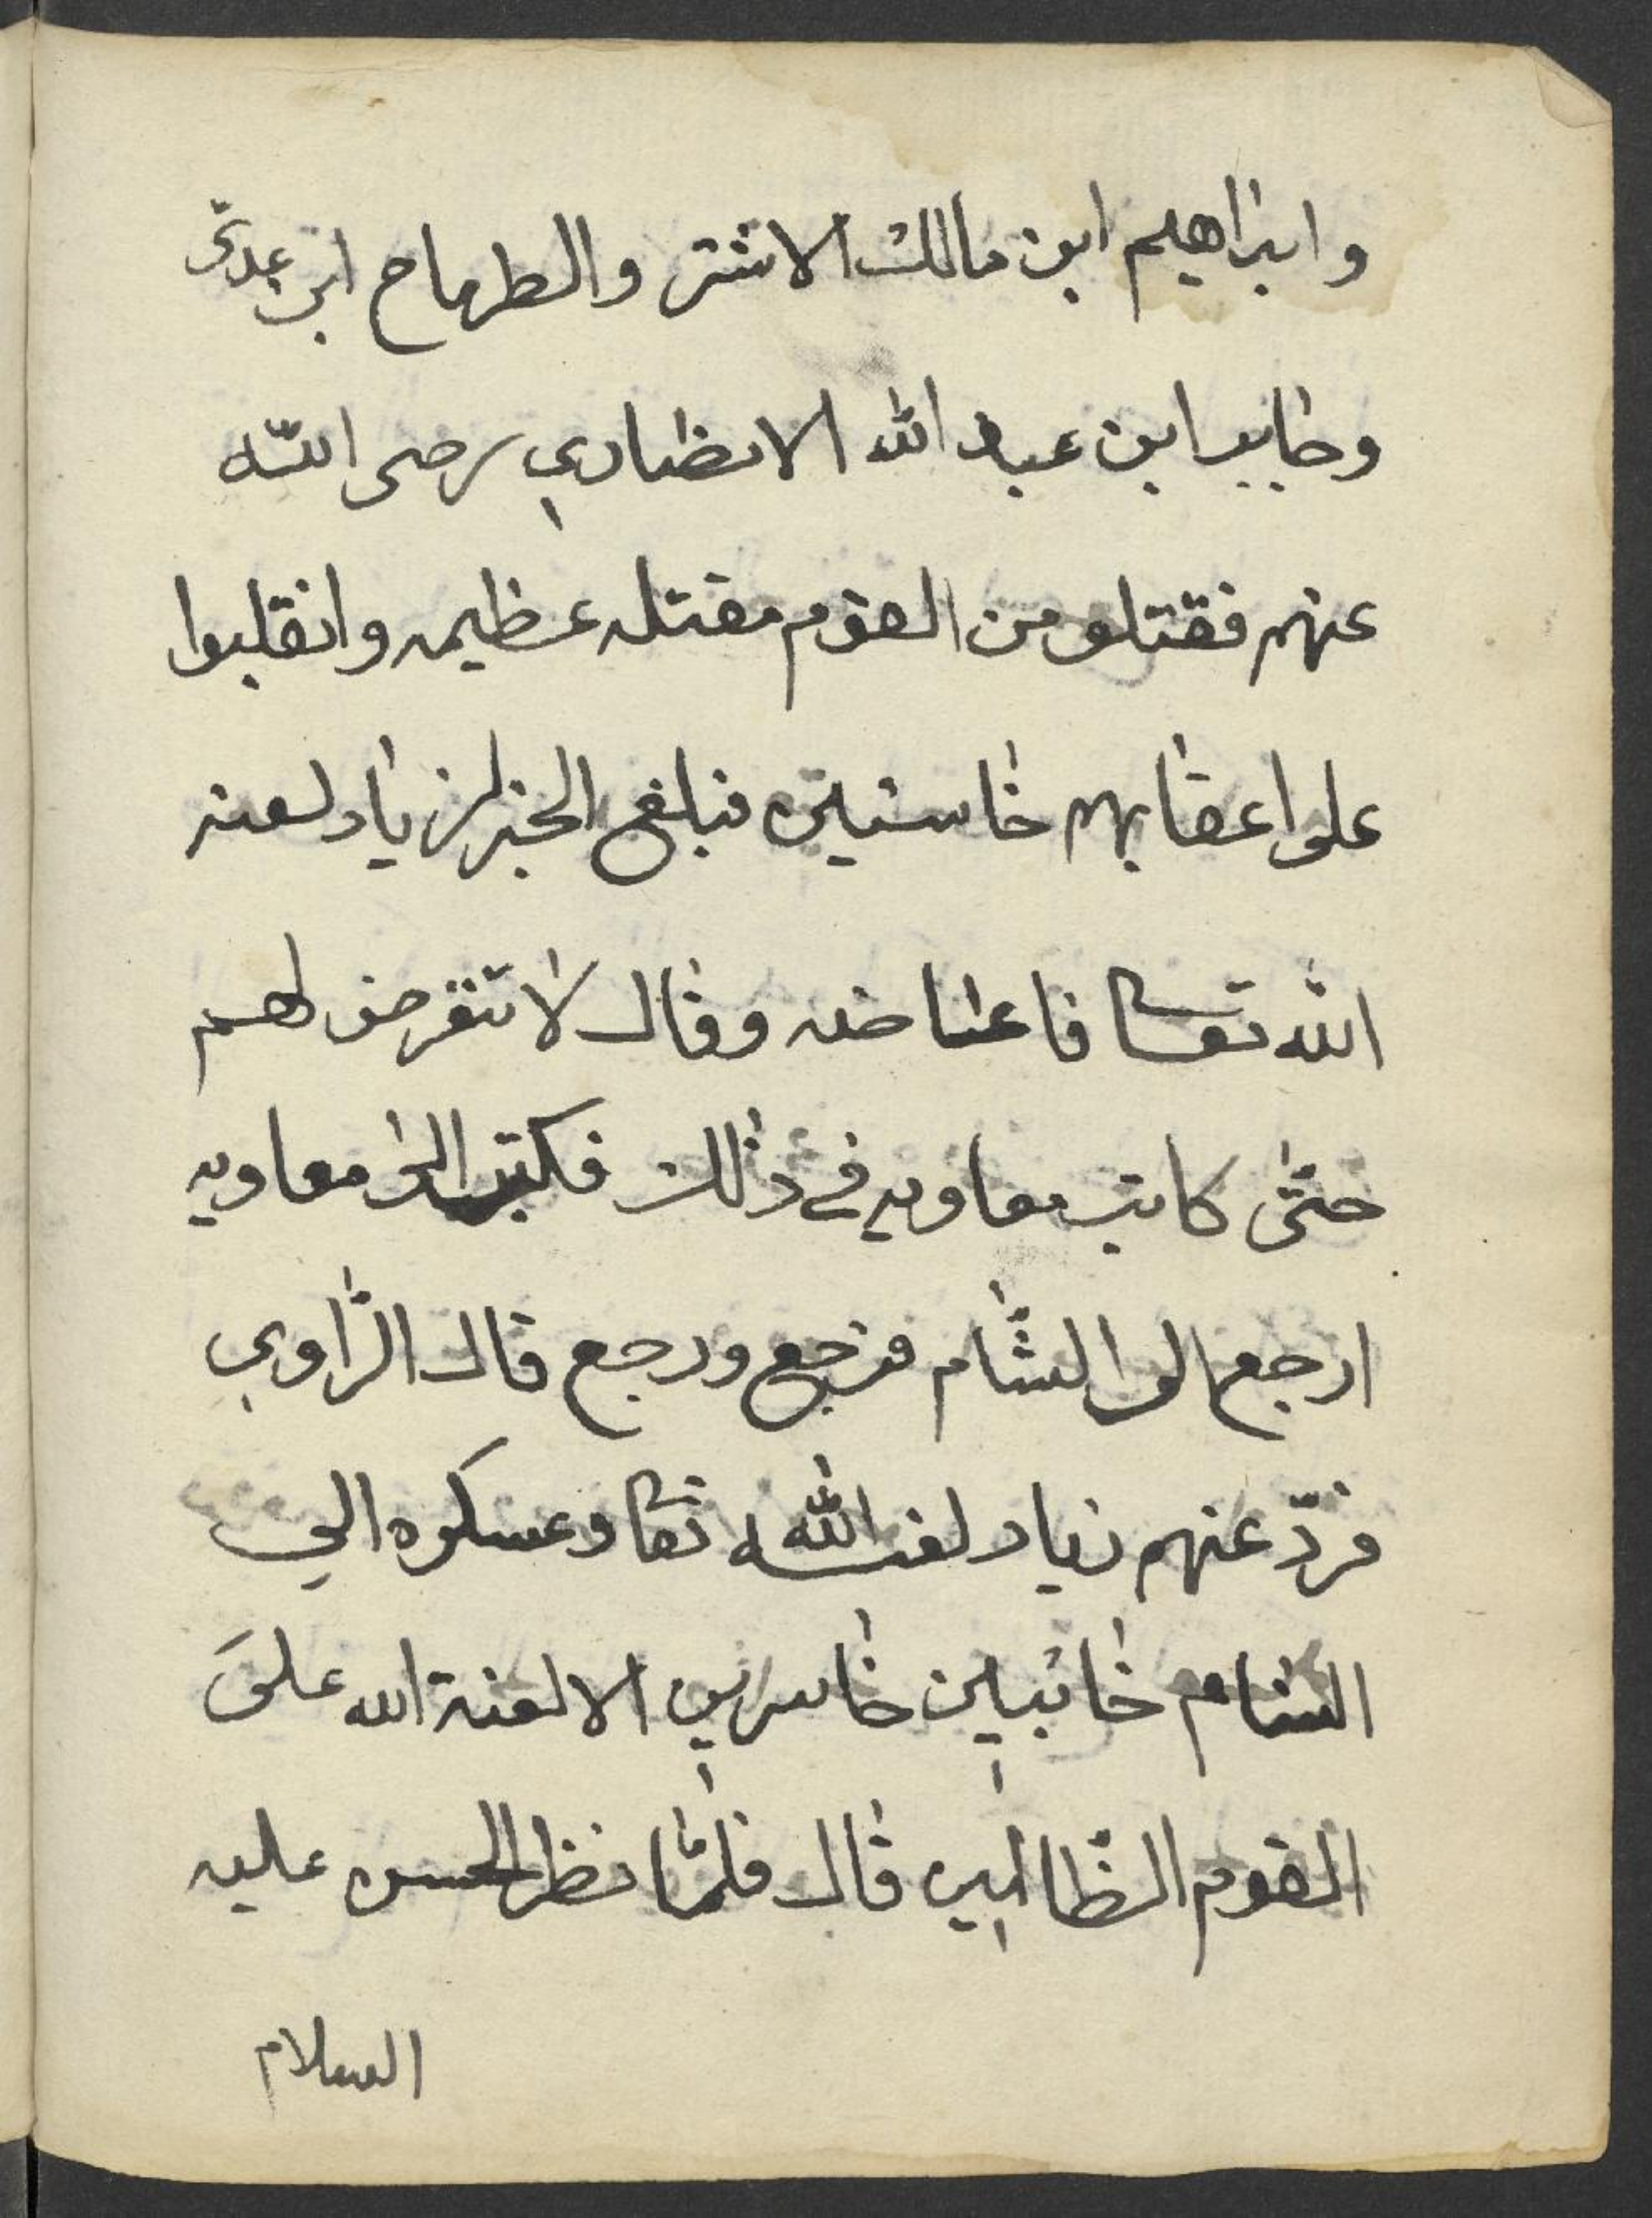 وابراهيم ابن مالك الاشتر والطرماح ابن عدى
وجابر ابن عبد الله الانصاري رضى الله
عنهم فقتلو من القوم مقتله عظيمه وانقلبوا
على اعقابهم خاسئين فبلغ الخبر لزياد لعنه
الله تعا فاغتاضه وقال لا تتعرض لهم
حتى كاتب معاويه في ذلك فكتب الى معاويه
ارجع الى الشام فرجع ورجع قال الراوي
فردّ عنهم زياد لعنه الله تعا وعسكره الي
الشام خائبين خاسرين الا لعنة الله علىَ
القوم الظالمين قال فلمّا نظر الحسن عليه
السلام